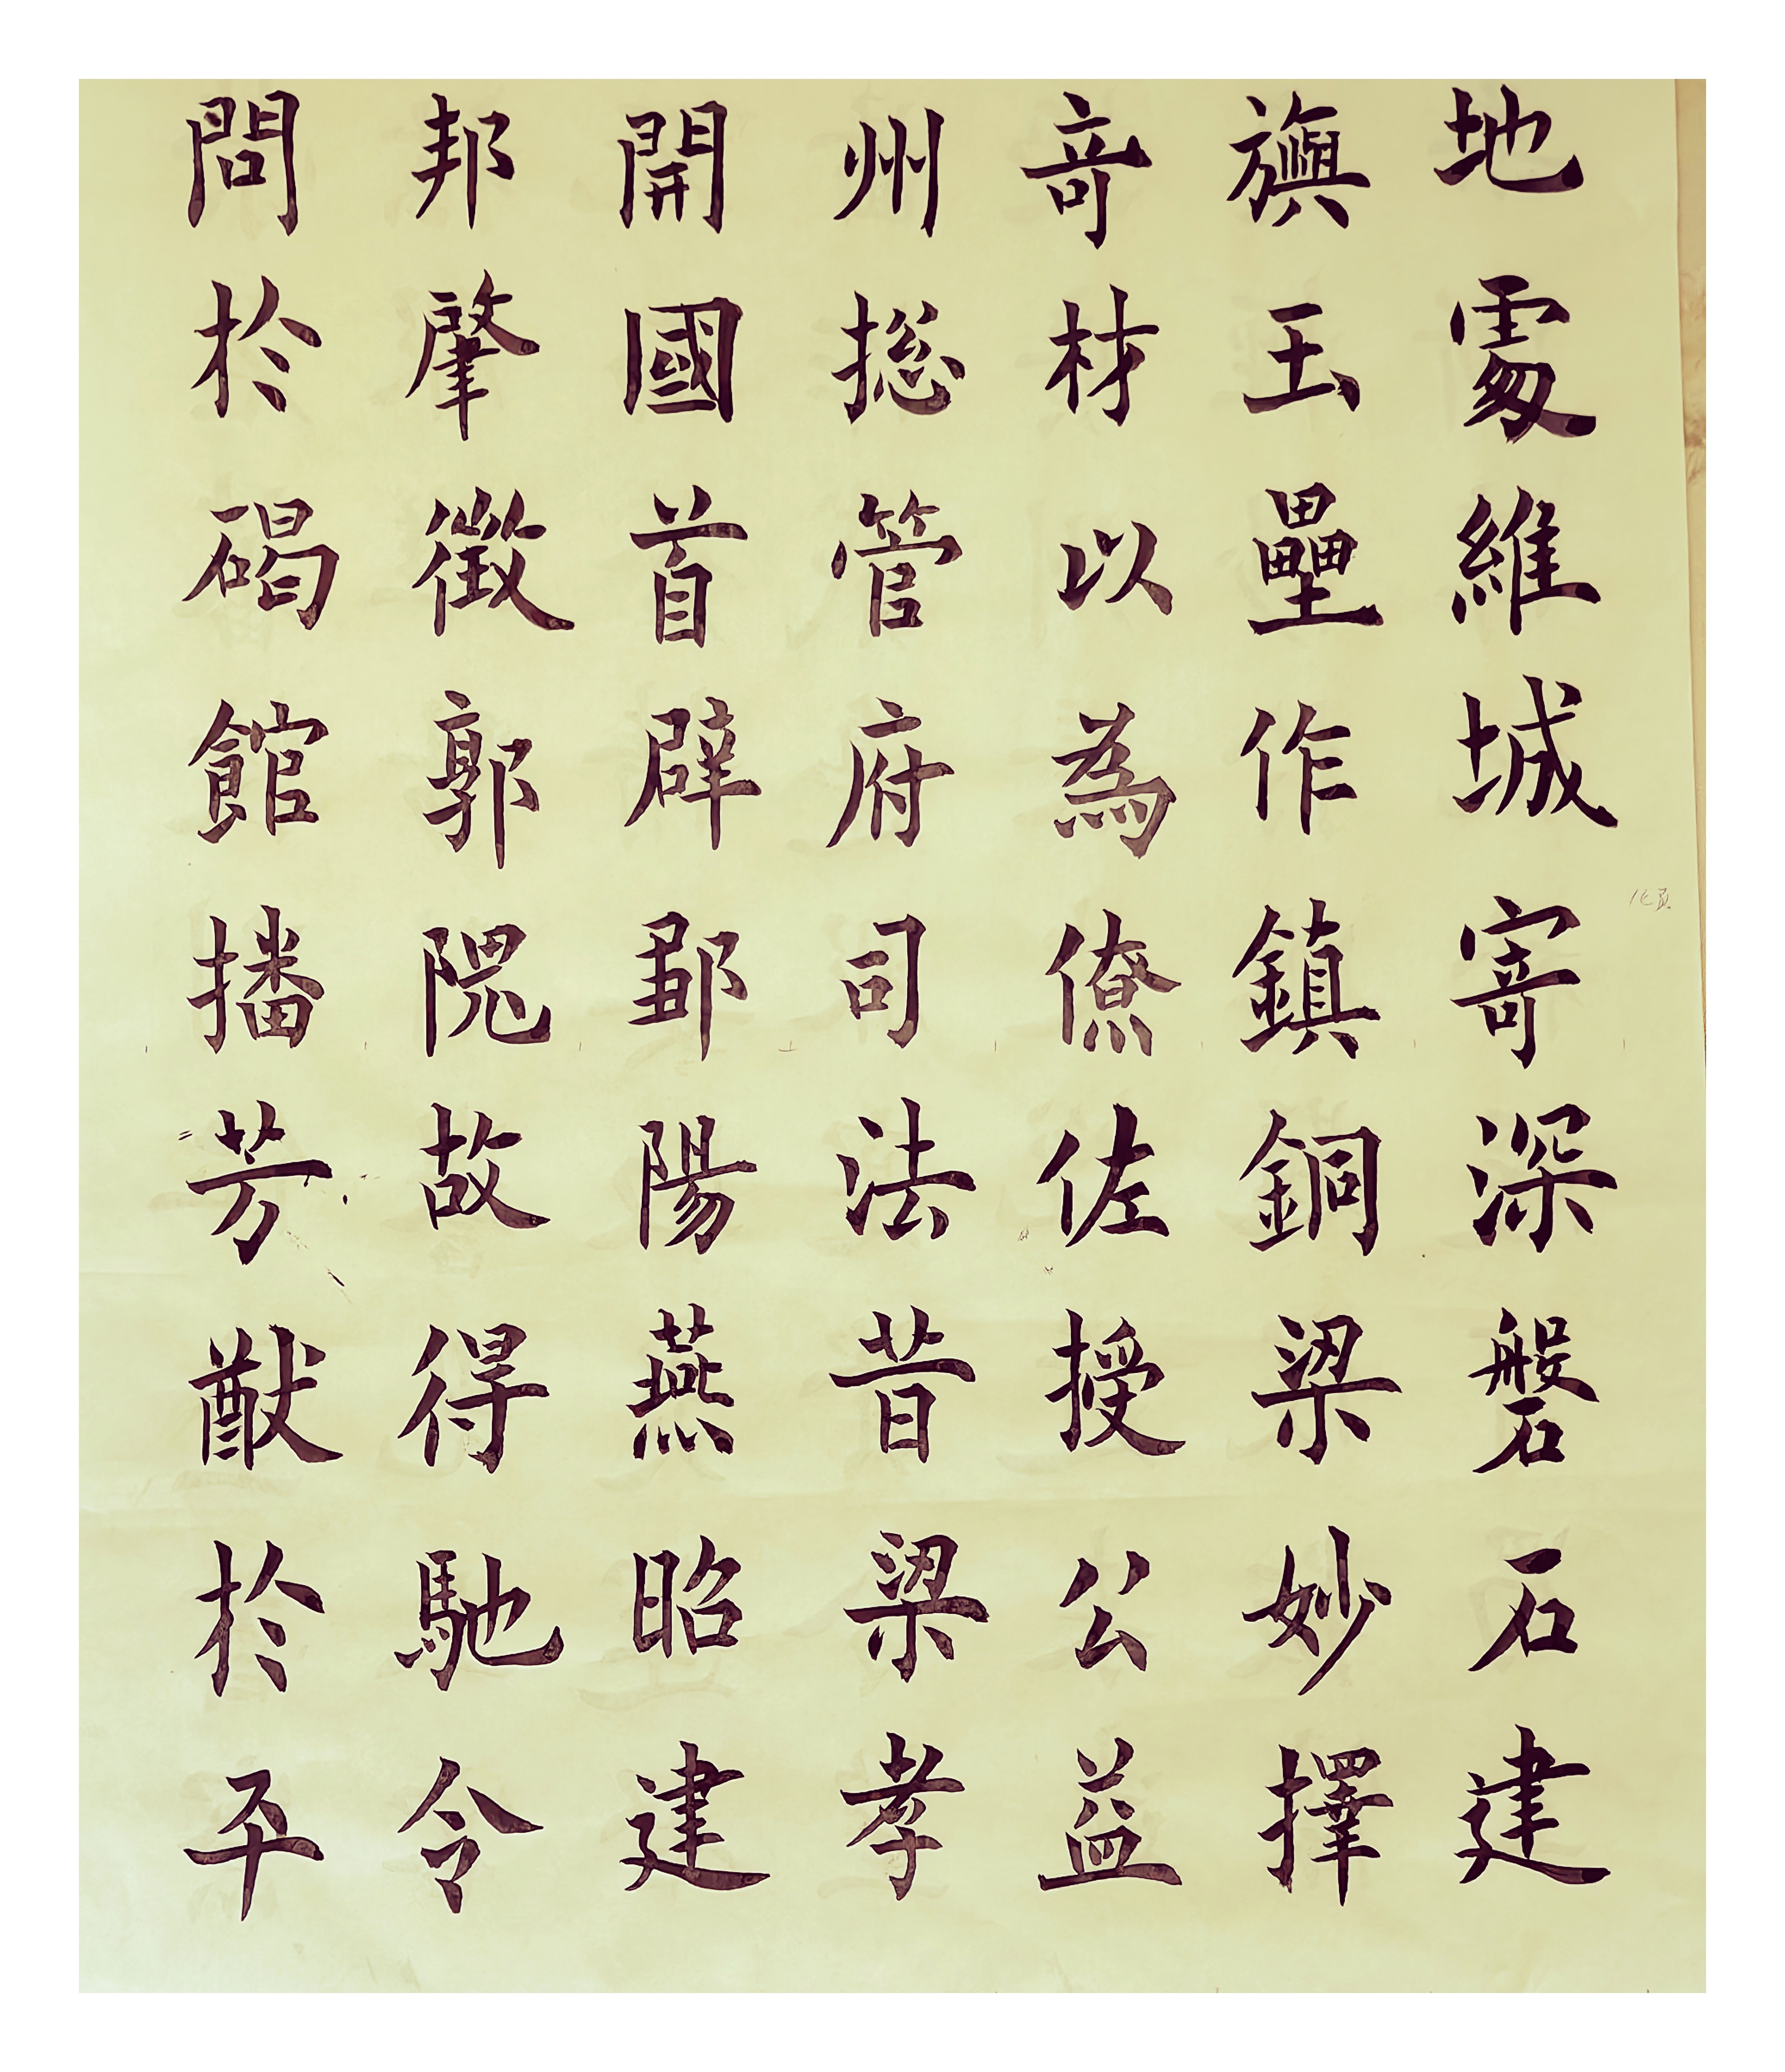 地處維城寄深磐石建
旟玉壘作鎮銅梁妙擇
奇材以為僚佐授公益
州揔管府司法昔梁孝
開國首辟鄒陽燕昭建
邦肇徵郭隗故得馳令
問於碣館播芳猷於平